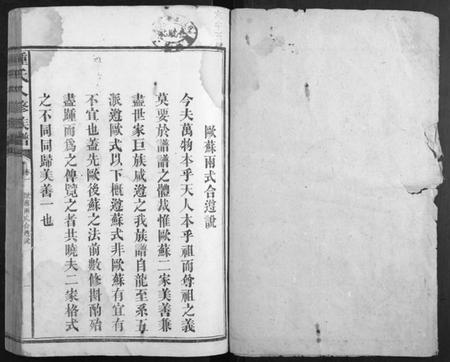 歐蘇兩式合遵說
今夫萬物本乎天人本乎祖而尊祖之義
莫要於譜譜之體裁惟歐蘇二家美善兼
盡世家巨族咸遵之我族譜自龍至系五
派遵歐式以下概遵蘇式非歐蘇有宜有
不宜也蓋先歐後蘇之法前數修斟酌殆
盡踵而為之俾覽之者共曉夫二家格式
之不同同歸美善一也
鍾氏八修族譜